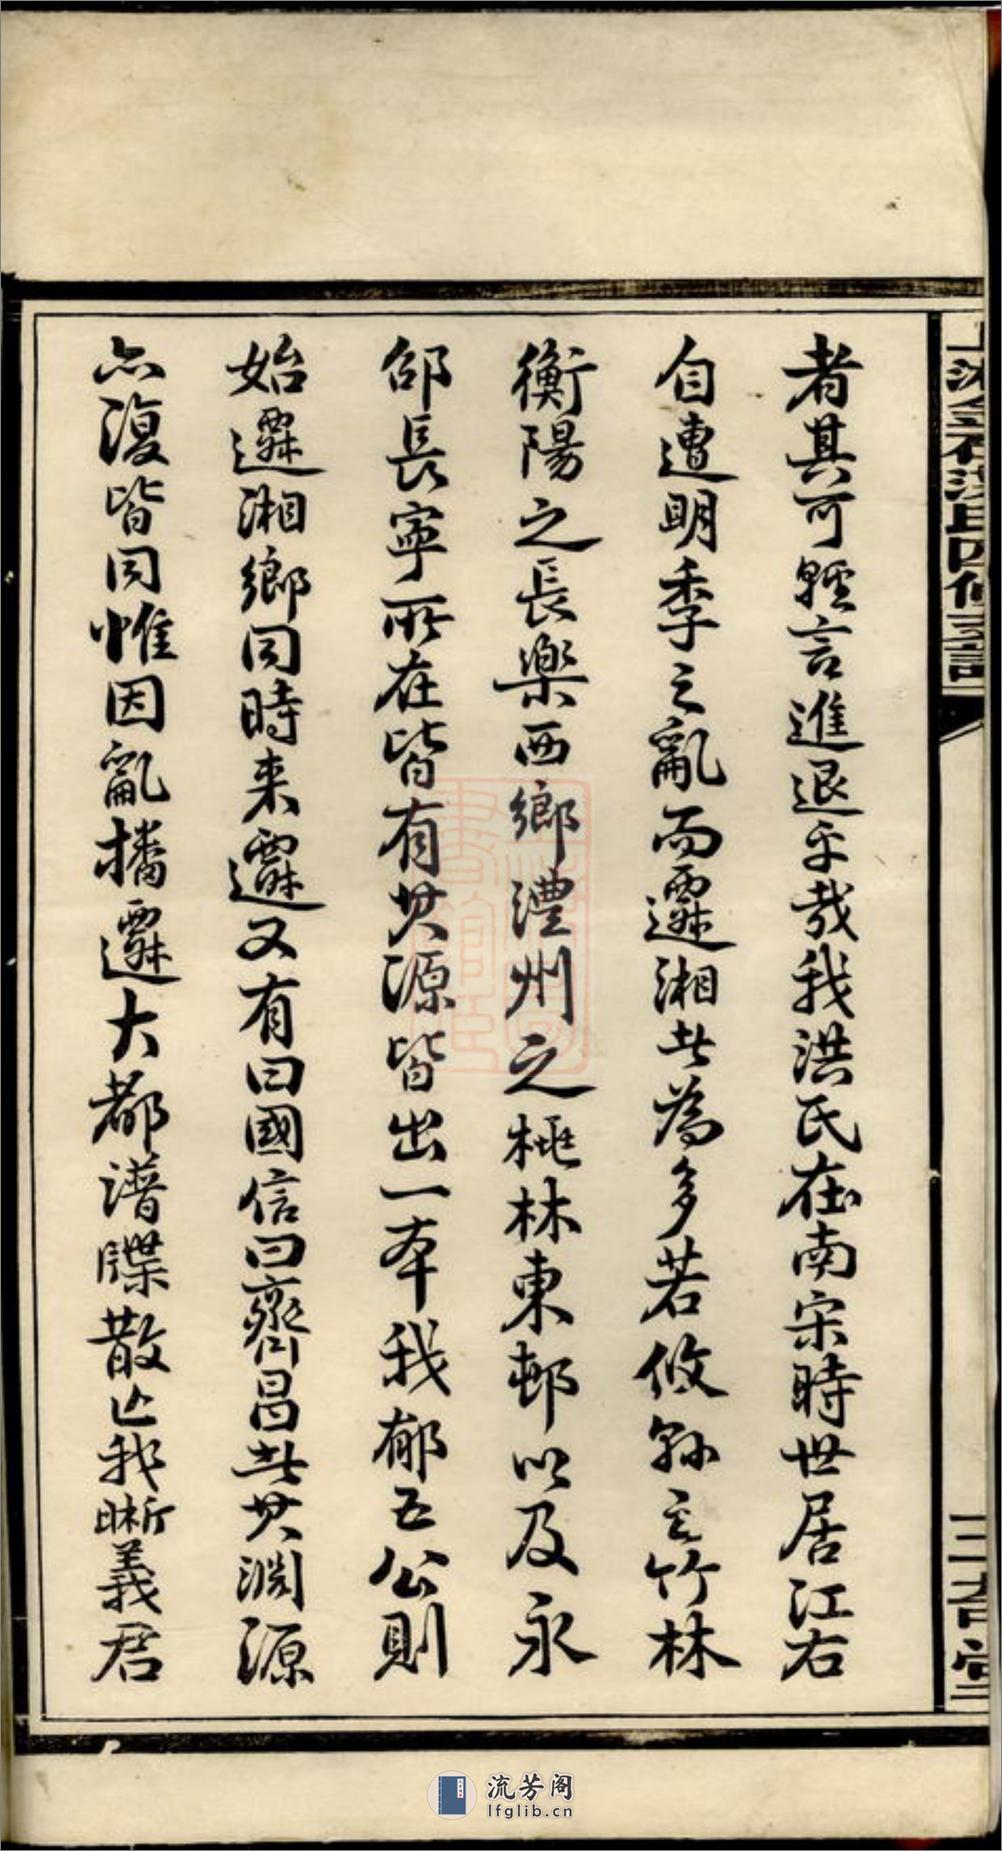 者其可輕言進退乎哉我洪氏在南宋時世居江右
自遭明季之亂而遷湘者為多若攸縣之竹林
衡陽之長樂西鄉澧州之桃林東邨以及永
邵長寧所在皆有共源皆出一本我郁五公則
始遷湘鄉同時来遷又有曰國信曰齊昌者共淵源
亦復皆同惟因亂播遷大都譜牒散亡我晰義君
上湘金石洪氏四修支譜
三吾堂
流芳阁
lfglib.cn